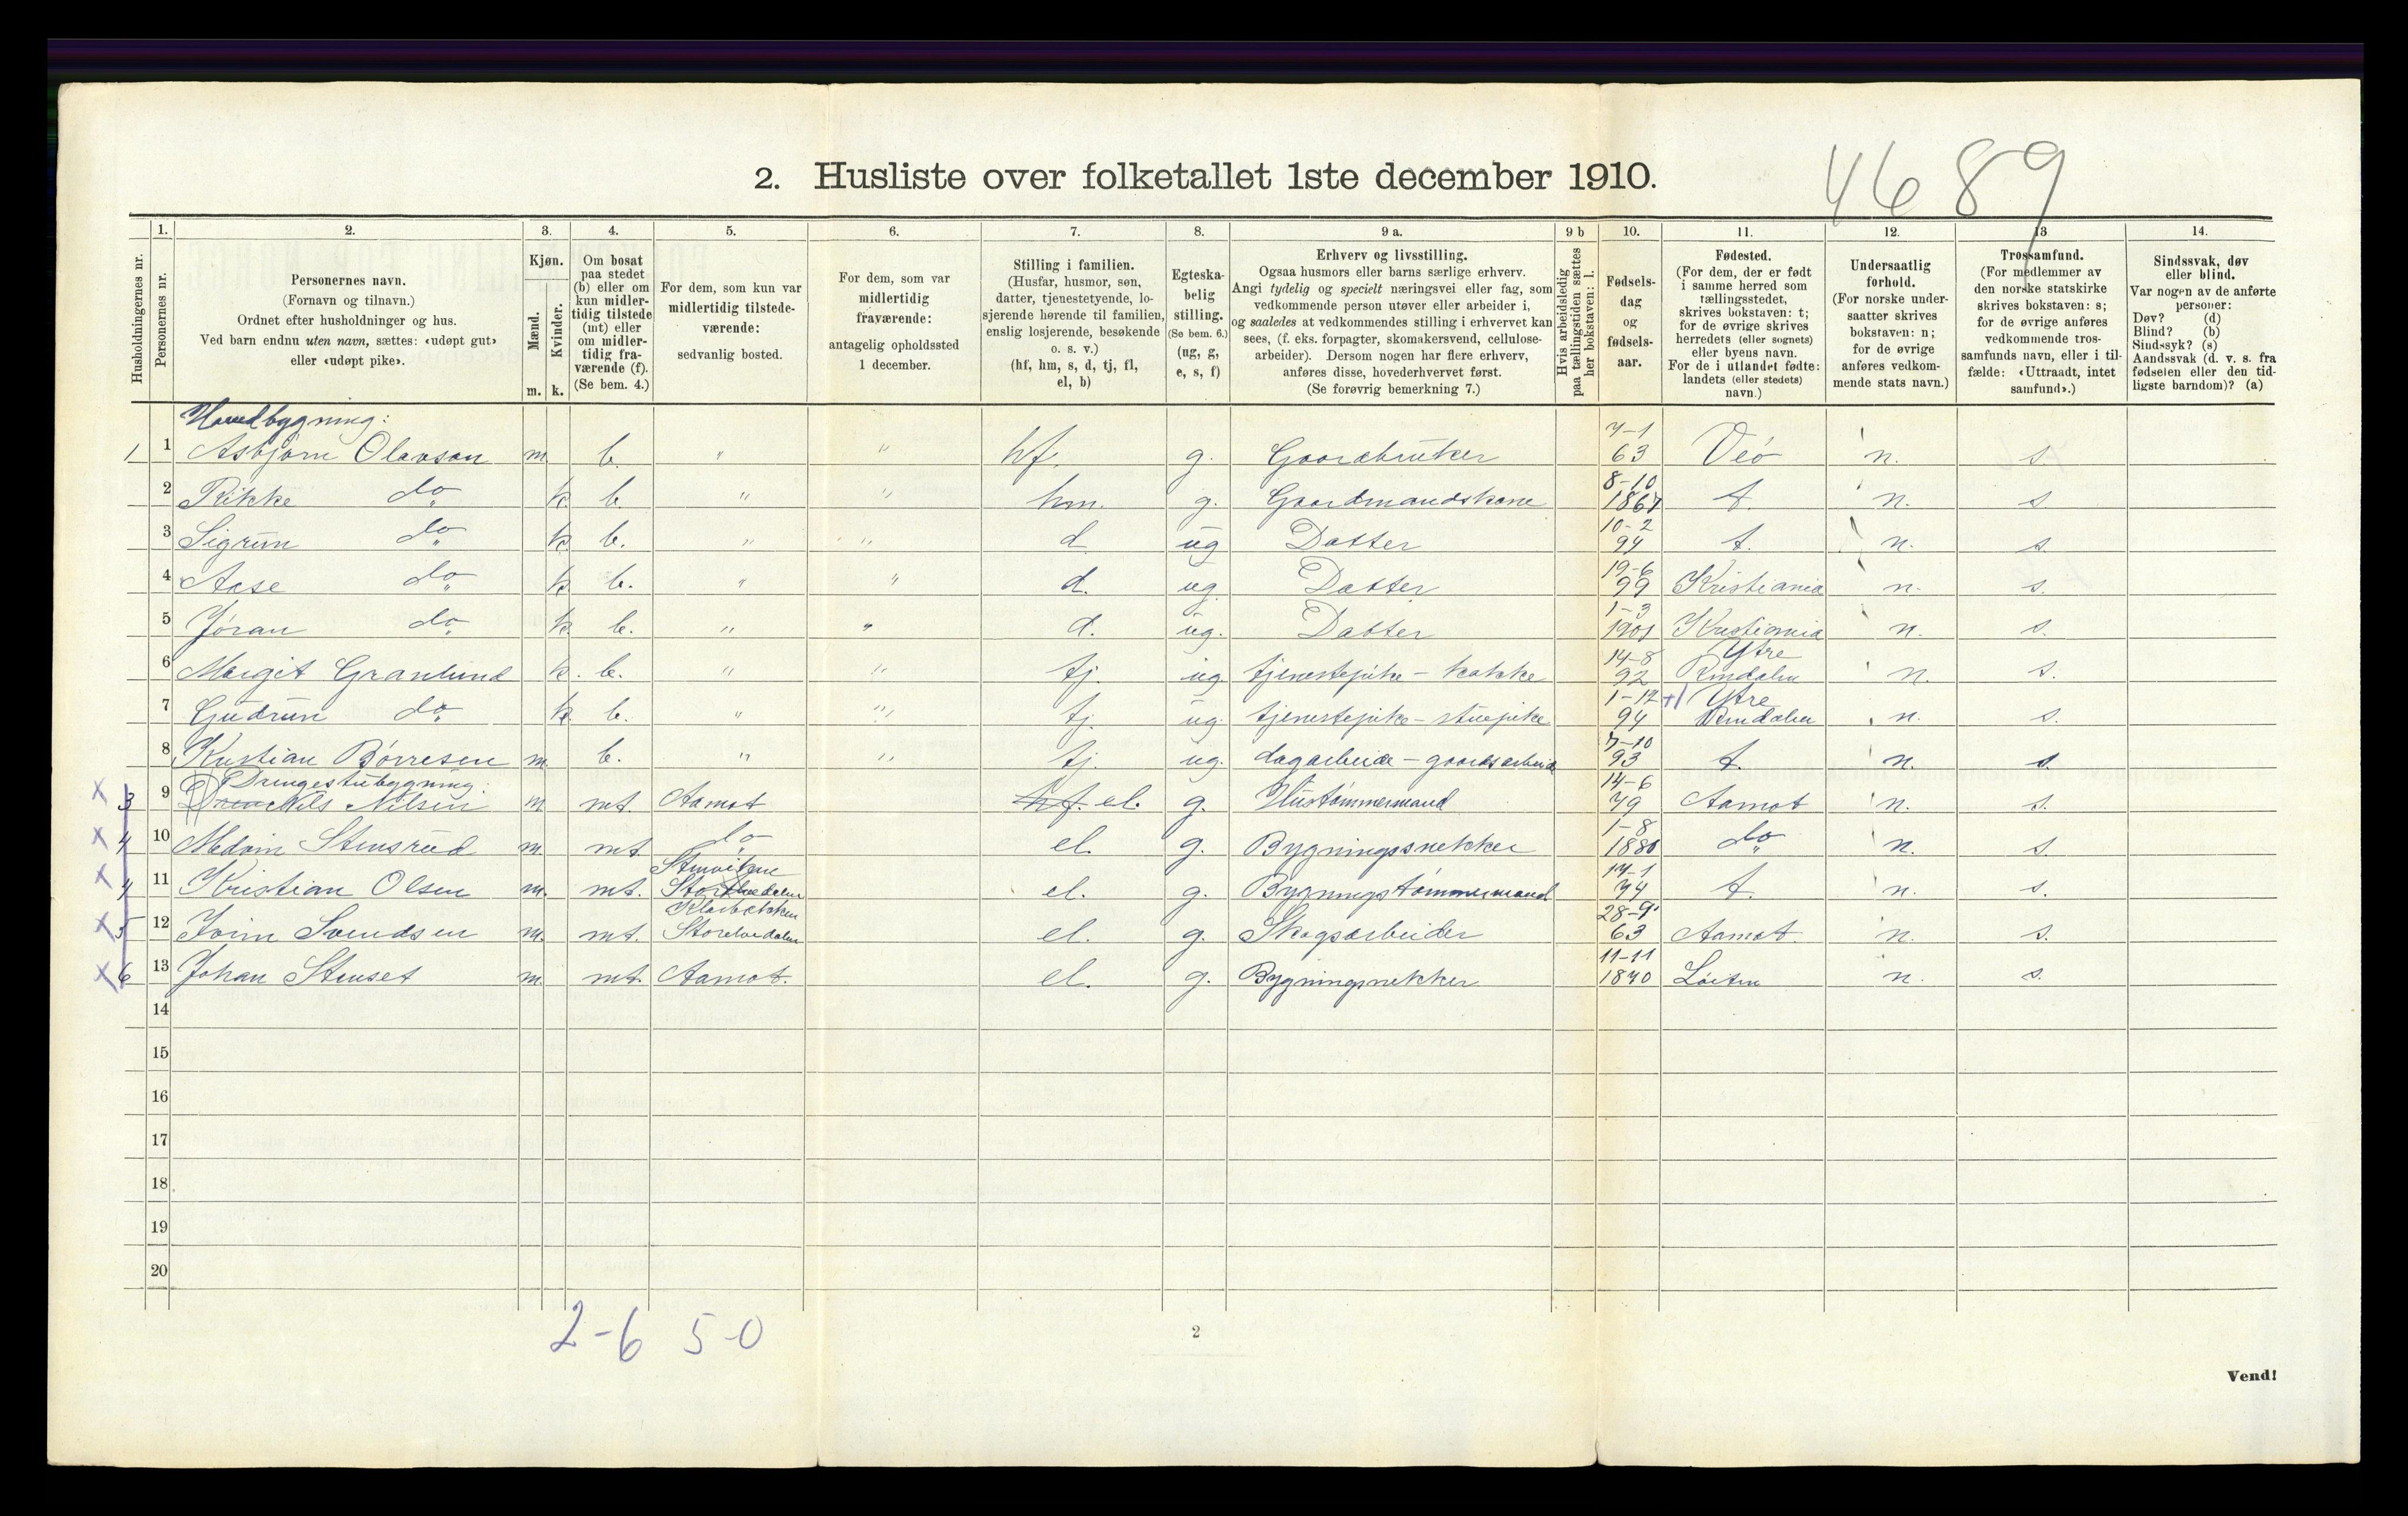 4689
2. Husliste over folketallet 1ste december 1910.
Husholdningernes nr.
1.
Personernes nr.
2.
Personernes navn.
(Fornavn og tilnavn.)
Ordnet efter husholdninger og hus.
Ved barn endnu uten navn, sættes: «udøpt gut»
eller «udøpt pike».
3.
Kjøn.
Mænd.
Kvinder.
m. k.
4.
Om bosat
paa stedet
(b) eller om
kun midler-
tidig tilstede
(mt) eller
om midler-
tidig fra-
værende (f).
(Se bem. 4.)
5.
For dem, som kun var
midlertidig tilstede-
værende:
sedvanlig bosted.
6.
For dem, som var
midlertidig
fraværende:
antagelig opholdssted
1 december.
7.
Stilling i familien.
(Husfar, husmor, søn,
datter, tjenestetyende, lo-
sjerende hørende til familien,
enslig losjerende, besøkende
o. s. v.)
(hf, hm, s, d, tj, fl,
el, b)
8.
Egteska-
belig
stilling.
(Se bem. 6.)
(ug, g,
e, s, f)
9 a.
Erhverv og livsstilling.
Ogsaa husmors eller barns særlige erhverv.
Angi tydelig og specielt næringsvei eller fag, som
vedkommende person utøver eller arbeider i,
og saaledes at vedkommendes stilling i erhvervet kan
sees, (f. eks. forpagter, skomakersvend, cellulose-
arbeider). Dersom nogen har flere erhverv,
anføres disse, hovederhvervet først.
(Se forøvrig bemerkning 7.)
9 b
Hvis arbeidsledig
paa tællingstiden sættes
her bokstaven: l.
10.
Fødsels-
dag
og
fødsels-
aar.
11.
Fødested.
(For dem, der er født
i samme herred som
tællingsstedet,
skrives bokstaven: t;
for de øvrige skrives
herredets (eller sognets)
eller byens navn.
For de i utlandet fødte:
landets (eller stedets)
navn.)
12.
Undersaatlig
forhold.
(For norske under-
saatter skrives
bokstaven: n;
for de øvrige
anføres vedkom-
mende stats navn.)
13
Trossamfund.
(For medlemmer av
den norske statskirke
skrives bokstaven: s;
for de øvrige anføres
vedkommende tros-
samfunds navn, eller i til-
fælde: «Uttraadt, intet
samfund».)
14.
Sindssvak, døv
eller blind.
Var nogen av de anførte
personer:
Døv? (d)
Blind? (b)
Sindssyk? (s)
Aandssvak (d. v. s. fra
fødselen eller den tid-
ligste barndom)? (a)
Hovedbygning:
1 1 Asbjørn Olavson m. b. " " hf. g. Gaardbruker 7-1 63 Veø n. s.
2 Rikke do k. b. " " hm. g. Gaardmandskone 8-10 1867 t. n. s
3 Sigrun do k. b. " " d ug Datter 10-2 94 t. n. s.
4 Aase do k. b. " " d. ug. Datter 19-6 99 Kristiania n. s.
5 Jøran do k. b. " " d. ug. Datter 1-3 1901 Kristiania n. s.
6 Margit Granlund k. b. " " tj. ug. tjenestepike - kokke 14-8 92 Ytre Rendalen n. s.
7 Gudrun do k. b. " " tj. ug. tjenestepike - stuepike 1-12 94 Ytre Rendalen n. s.
8 Kristian Børresen m. b. " " tj. ug. dagarbeide - gaardsarbeide 7-10 93 t. n. s.
Drengestubygning.
x 3 9 Nils Nilsen m. mt. Aamot hf. el. g. Hustømmermand 14-6 79 Aamot n. s.
x 4 10 Medvin Stensrud m. mt do el. g. Bygningssnekker 1-8 1880 do n. s.
x 4 11 Kristian Olsen m. mt. Stenviken Storelvedalen el. g. Bygningstømmermand 14-1 74 t. n. s.
x 5 12 Iver Svendsen m. mt. Klarbækken Storelvedalen el. g. Skogsarbeider 28-9 63 Aamot. n. s.
x 6 13 Johan Stenset m. mt. Aamot. el. g. Bygningsnekker 11-11 1840 Løiten n. s.
14
15
16
17
18
19
20
2-6 5-0
2
Vend!